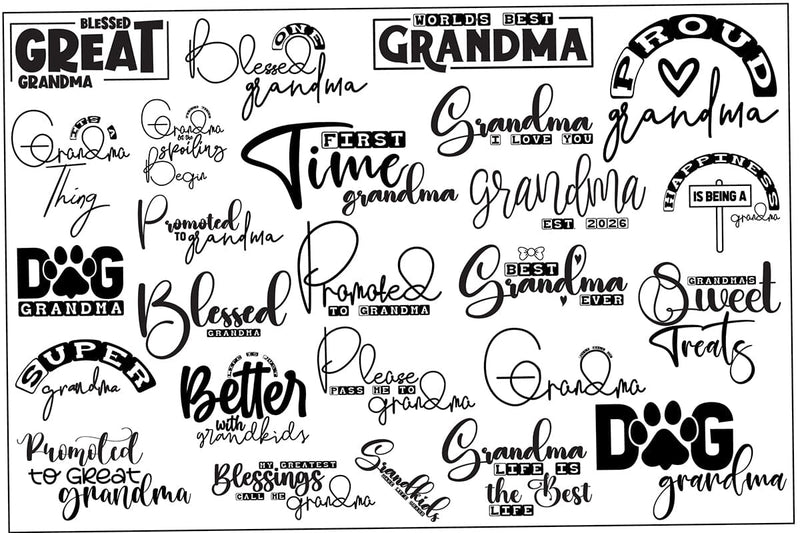 BLESSED
GREAT
GRANDMA
Blessed ONE
grandma
WORLDS BEST
GRANDMA
PROUD
grandma
ITS A
Grandma
Thing
Grandma
spoiling
Begin
FIRST
Time
grandma
Grandma
I LOVE YOU
grandma
EST 2026
HAPPINESS
IS BEING A
grandma
Promoted
TO grandma
DOG
GRANDMA
Blessed
GRANDMA
Promoted
TO GRANDMA
BEST
Grandma
EVER
GRANDMAS
Sweet
Treats
SUPER
grandma
LIFE IS JUST
Better
with
grandkids
Please
PASS ME TO
grandma
Grandma
Promoted
to GREAT
grandma
MY GREATEST
Blessings
CALL ME grandma
Grandkids
Grandma
LIFE IS
the Best
LIFE
DOG
grandma